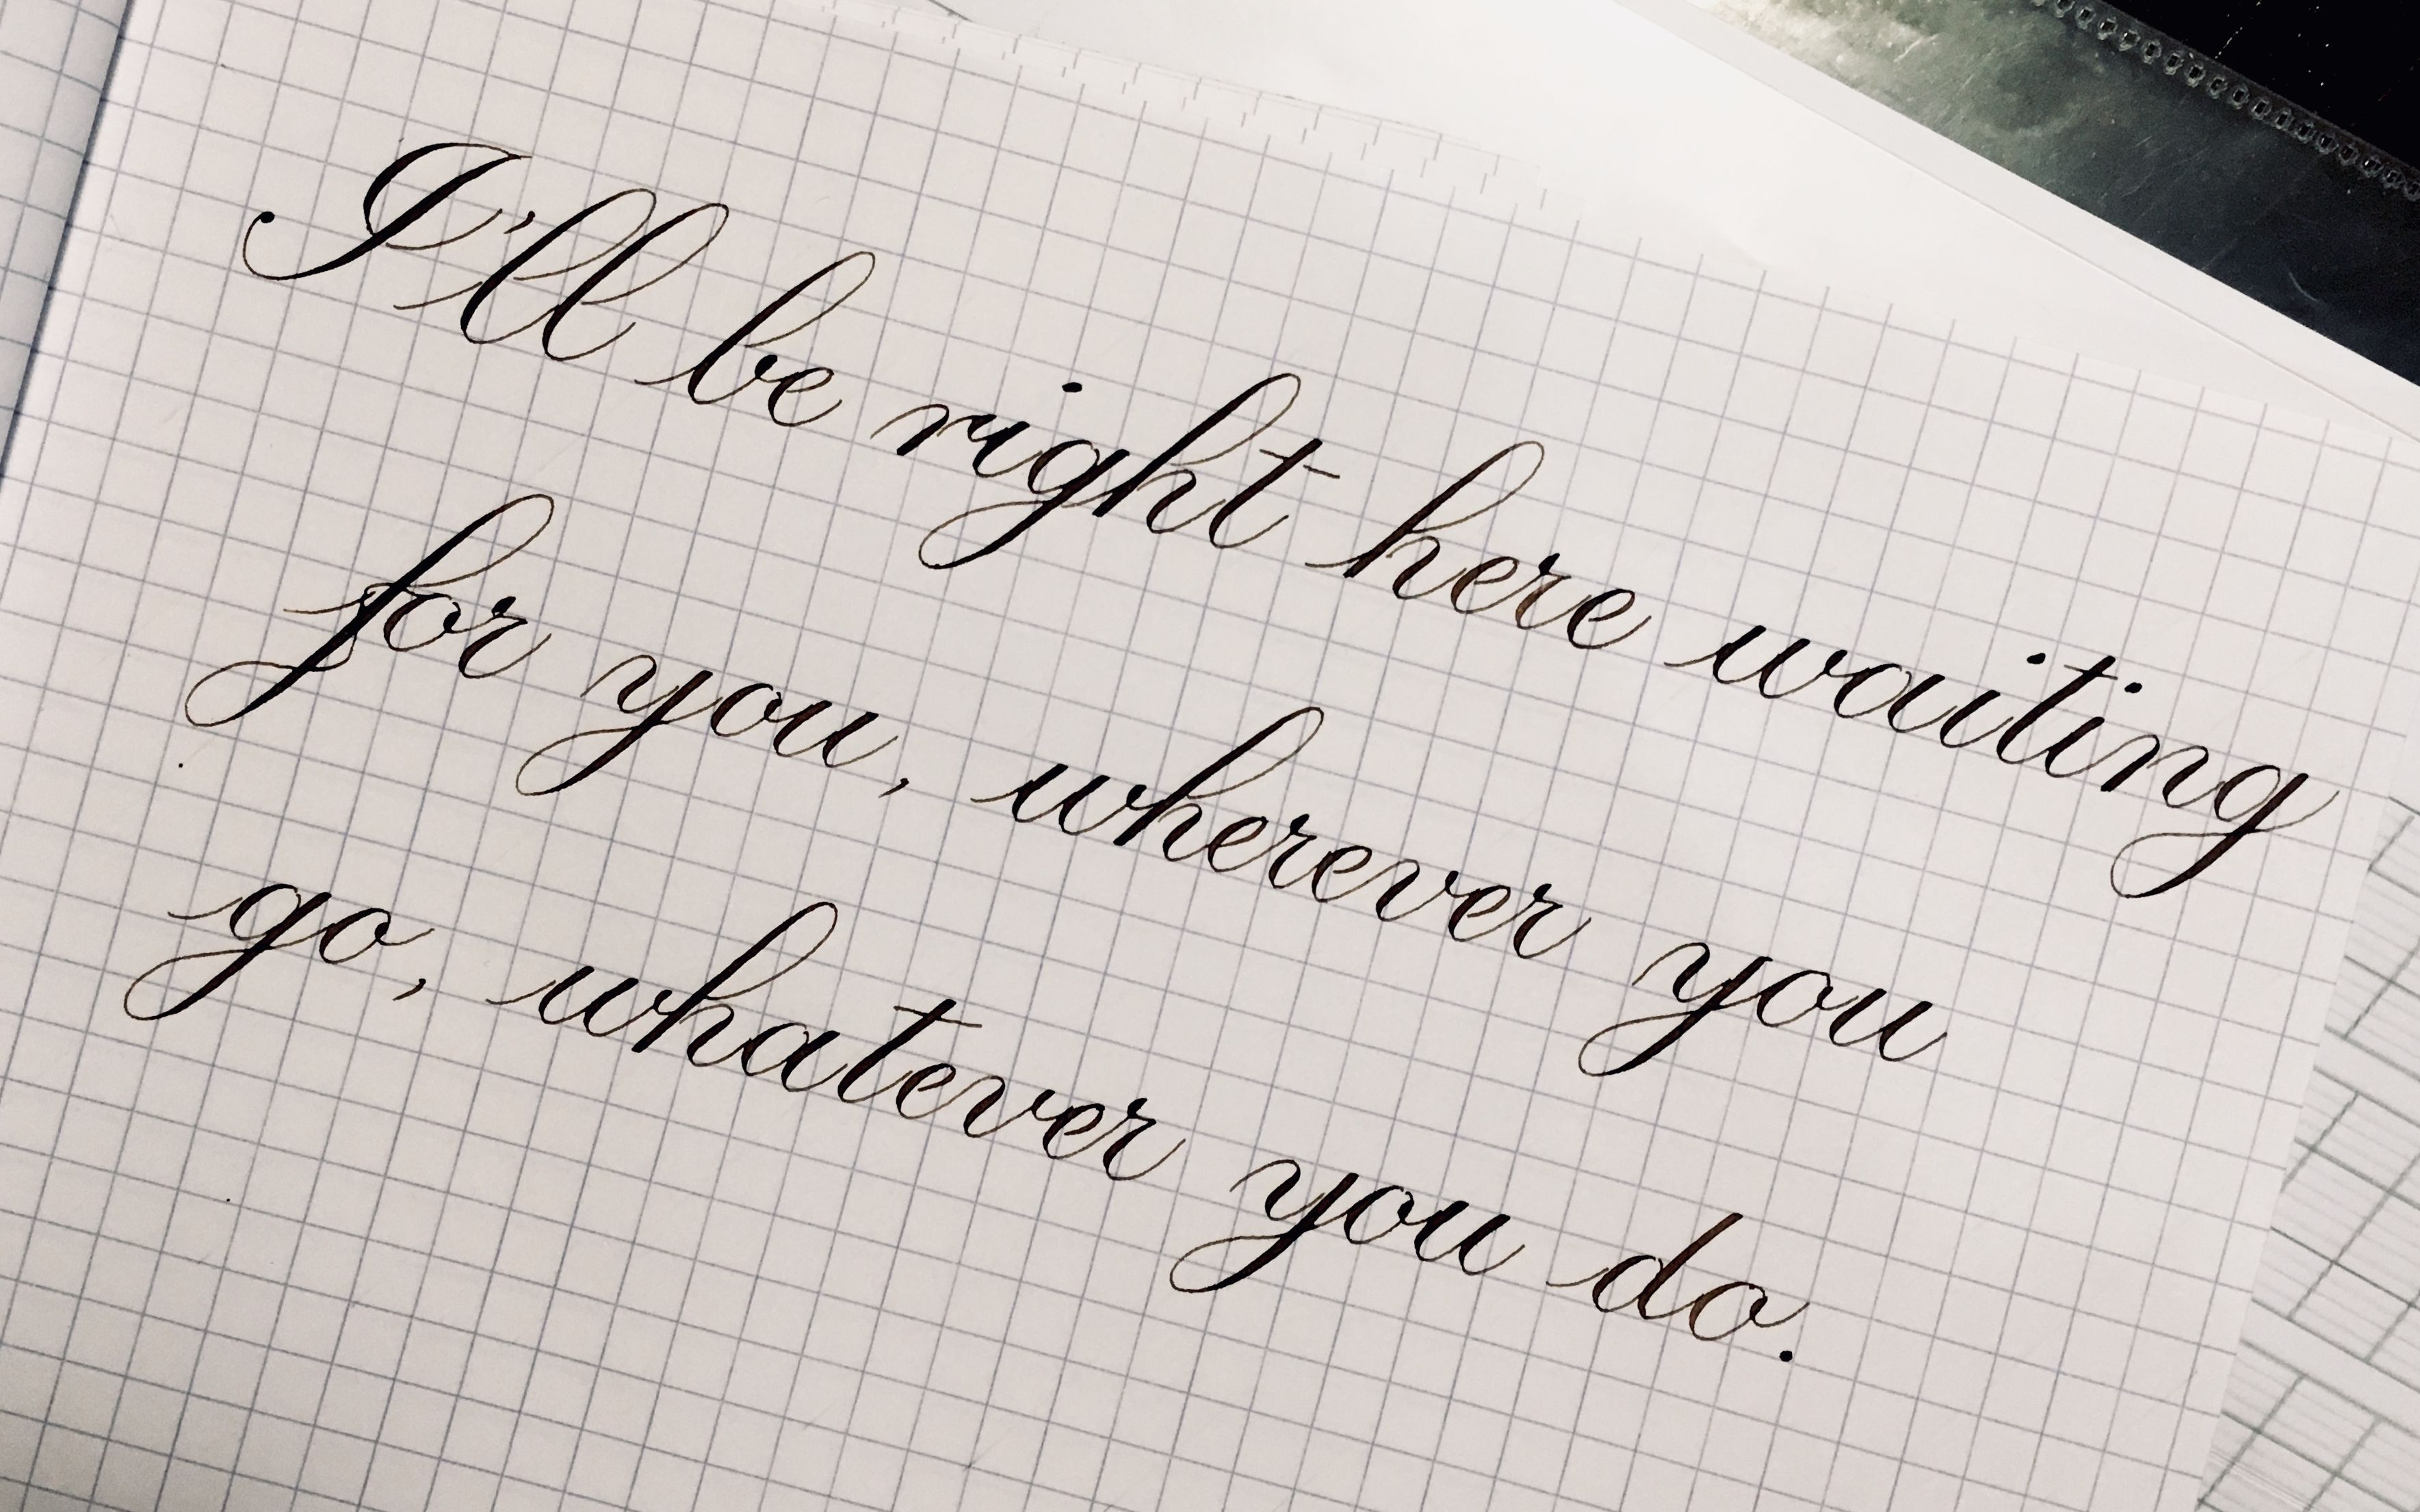 I'll be right here waiting
for you, wherever you
go, whatever you do.